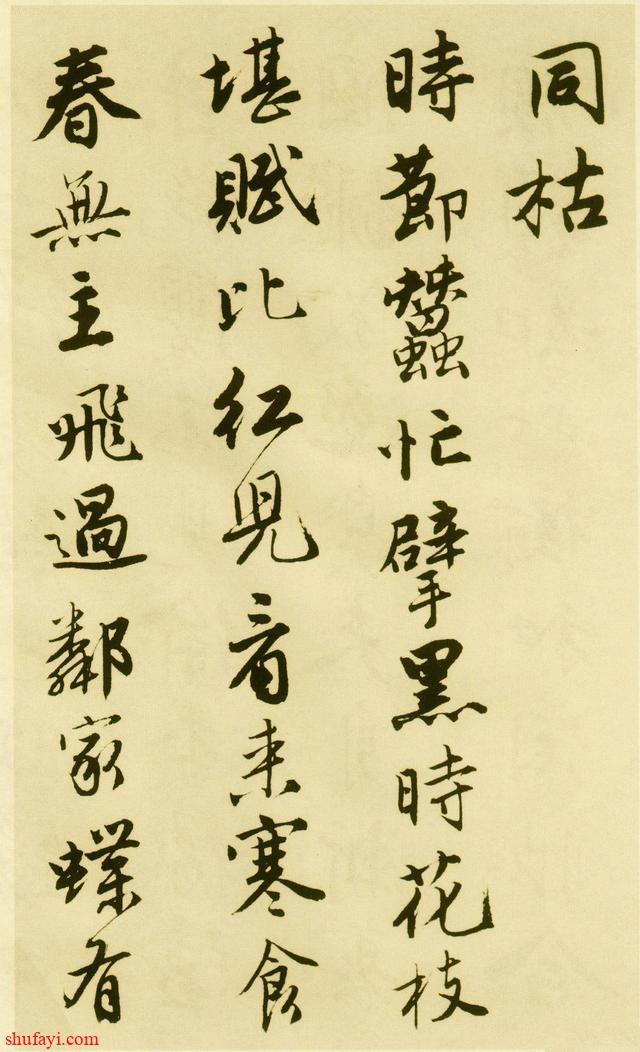 同枯
時節蠶忙擘黑時花枝
堪賦比紅兒看來寒食
春無主飛過鄰家蝶有
shufayi.com